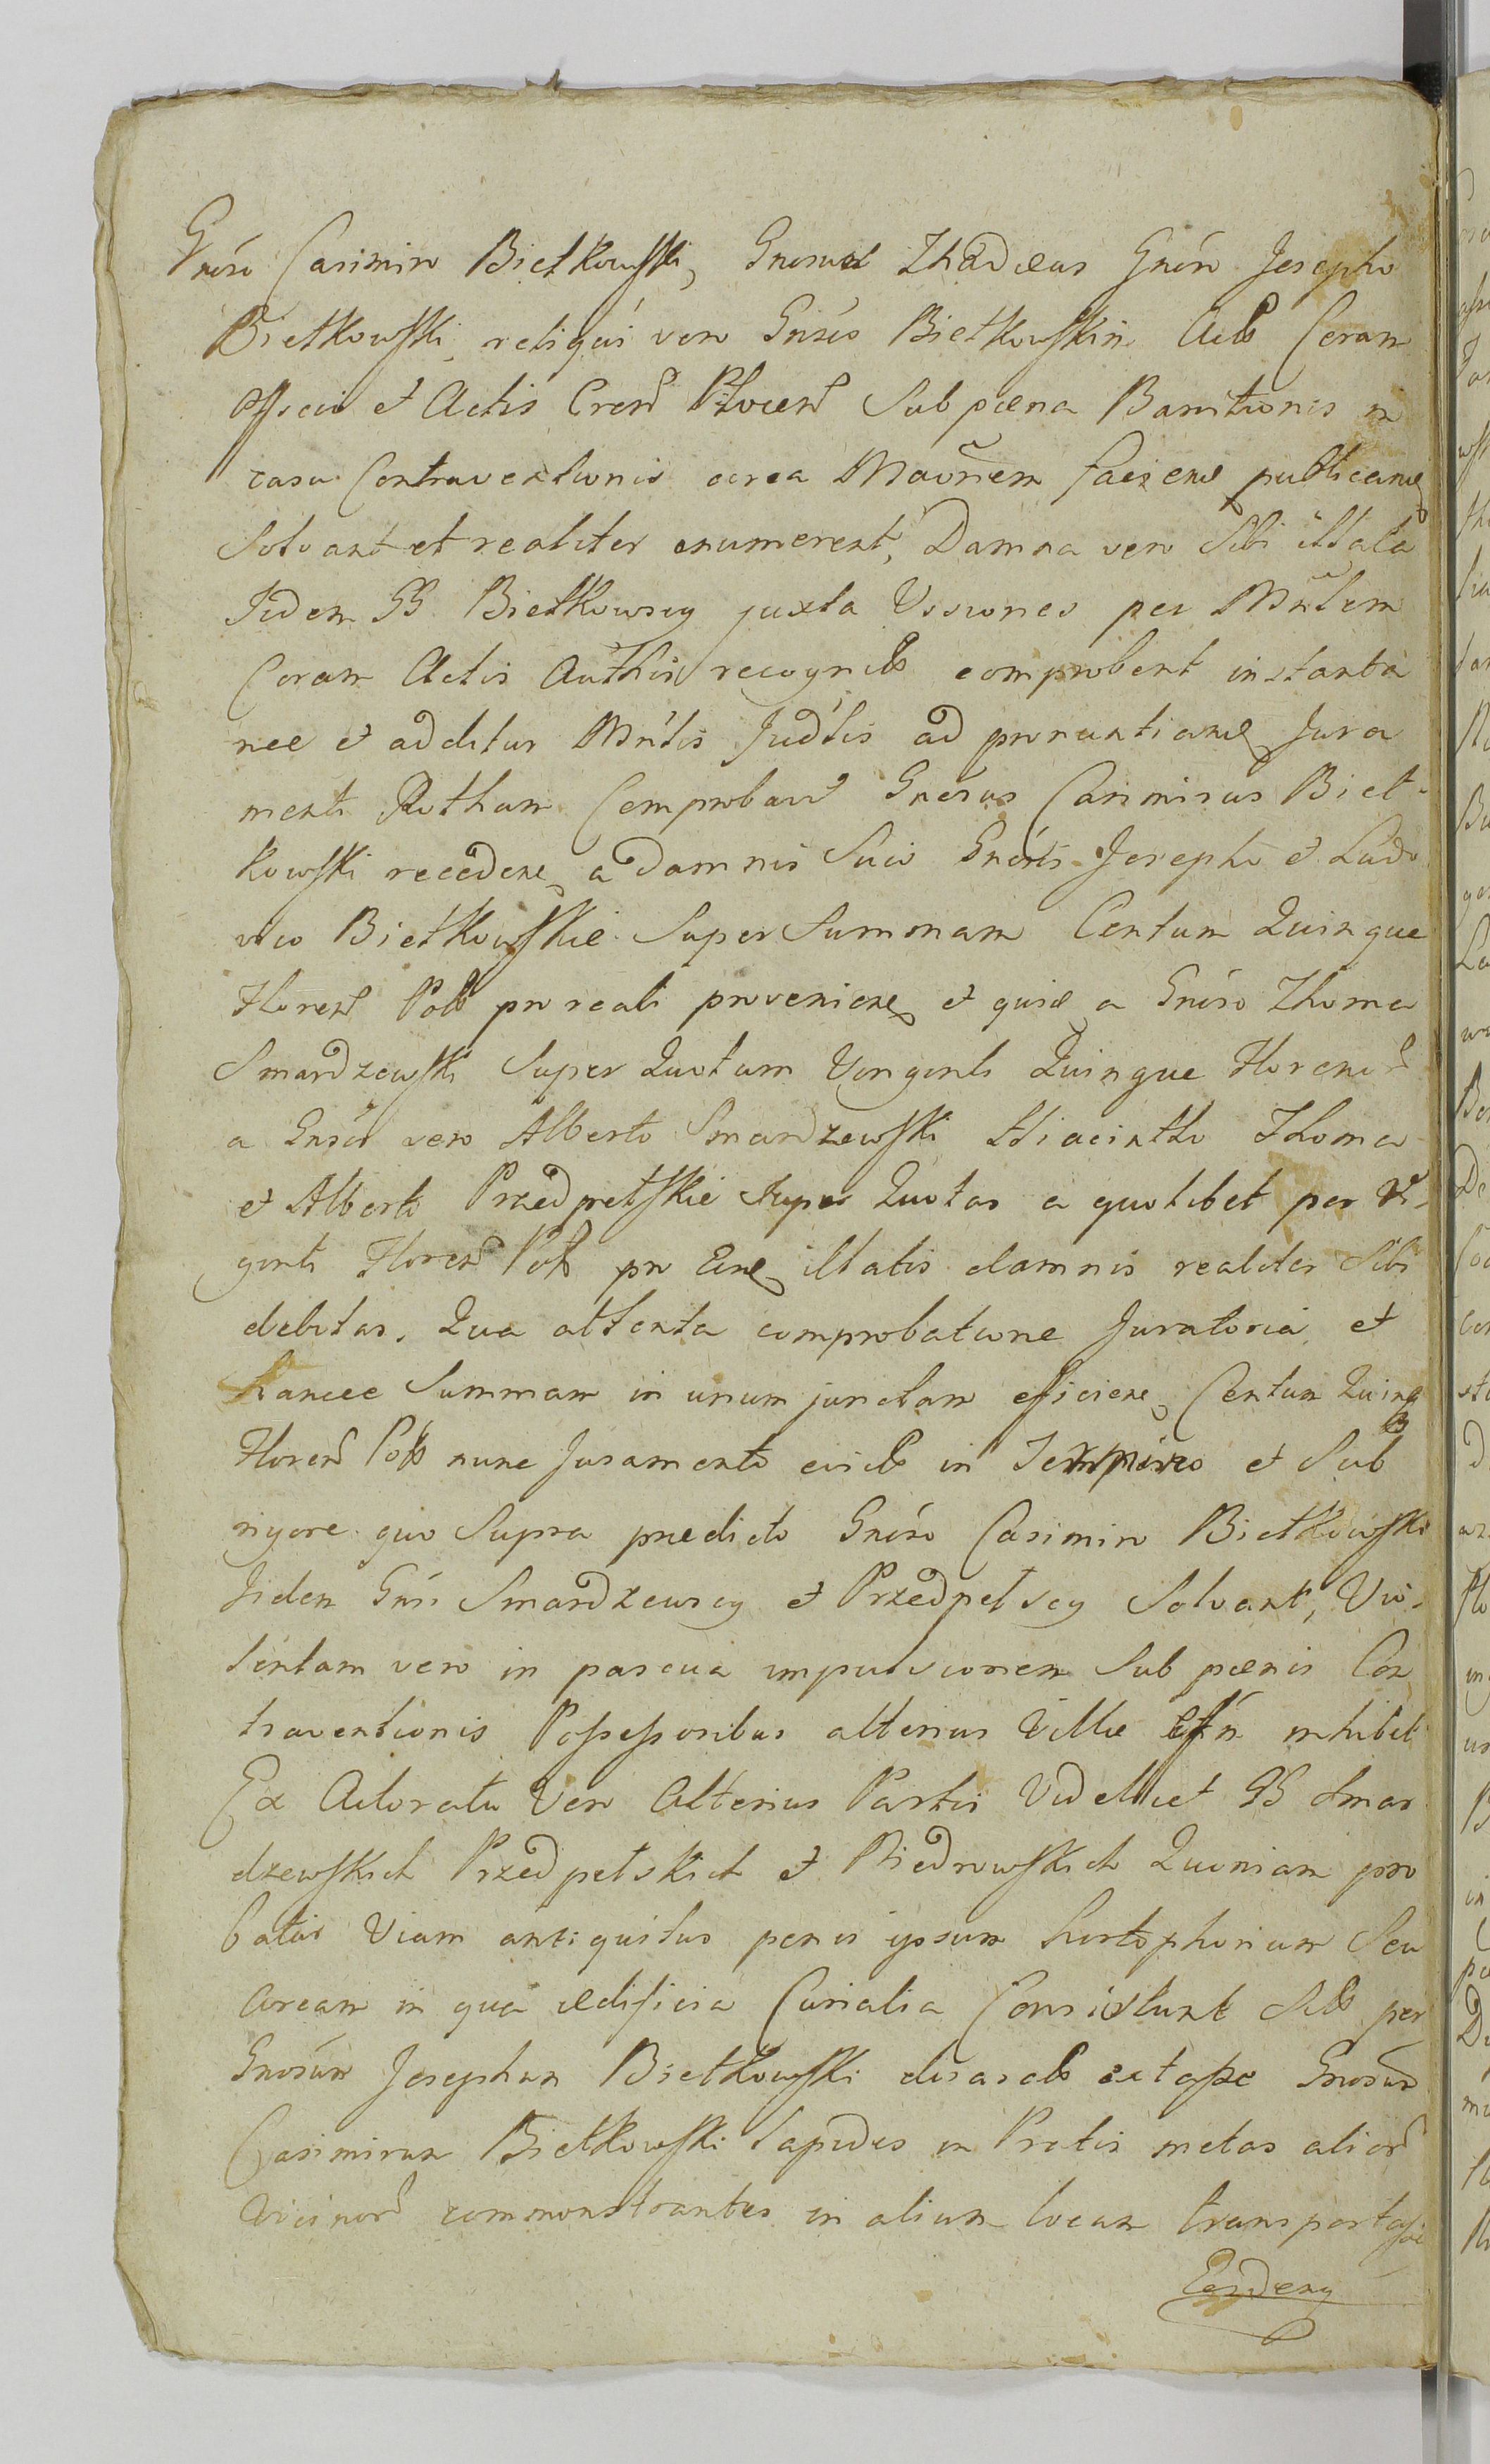 Gnoso Casimiro Bietkowski, Gnosus Thadæus Gnoso Josepho
Bietkowski, reliqui vero Gnosis Bietkowskim Actb Coram
Officio et Actis Crens Plocens Sub pæna Banitionis in
casu Contraventionis circa Maõnem faciene publicane
Solvant et realiter enumerent, Damna vero Sibi illata
Iidem GG Bietkowscy juxta Vssiones per Mñlem
Coram Actis Authis recognitb comprobent instanta
nee et additur Mñlis Judlis ad pronuntiane Jura
menti Rotham Comprobavt Gnosus Casimirus Biet-
kowski recedene a damnis Suis Gnosis Josepho et Ludo
vico Bietkowskie Super Summam Centum Quinque
Floren Polb pro reali proveniene et quidē a Gnoso Thoma
Smardzewski Super Quotam Viginti Quinque Floren
a Gnosis vero Alberto Smardzewski Hiacintho Thoma
et Alberto Przedpełskie Super Quotas a quolibet per Vi-
ginti Floren Polb pro Eine illatis damnis realiter Sibi
debitas. Qua attenta comprobatione Juratoria et
hancce Summam in unum junctam efficiene Centum Quinq
Floren Polb nunc Juramento evictb in Termino et Sub
rigore quo Supra prædicto Gnoso Casimiro Bietkowski
Iidem Gnsi Smardzewscy et Przedpełscy Solvant, Vio-
lentam vero in pascua impulsionem Sub pænis Con
traventionis Possessoribus alterius Villæ inhibet
Ex Actoratu Vero Alterius Partis Videlicet GG Smar
dzewskich Przedpełskich et Biedrowskich Quoniam pro
batur Viam antiquitus penes ipsum hortophorium Seu
Aream in qua ædificia Curialia Consistunt Sitb per
Gnosum Josephum Bietkowski exarasse Gnosum
Casimirum Bietkowski Lapides in Pratis metas alior
Vicinor commonstrantes in alium locum transportasse
Eosdemq